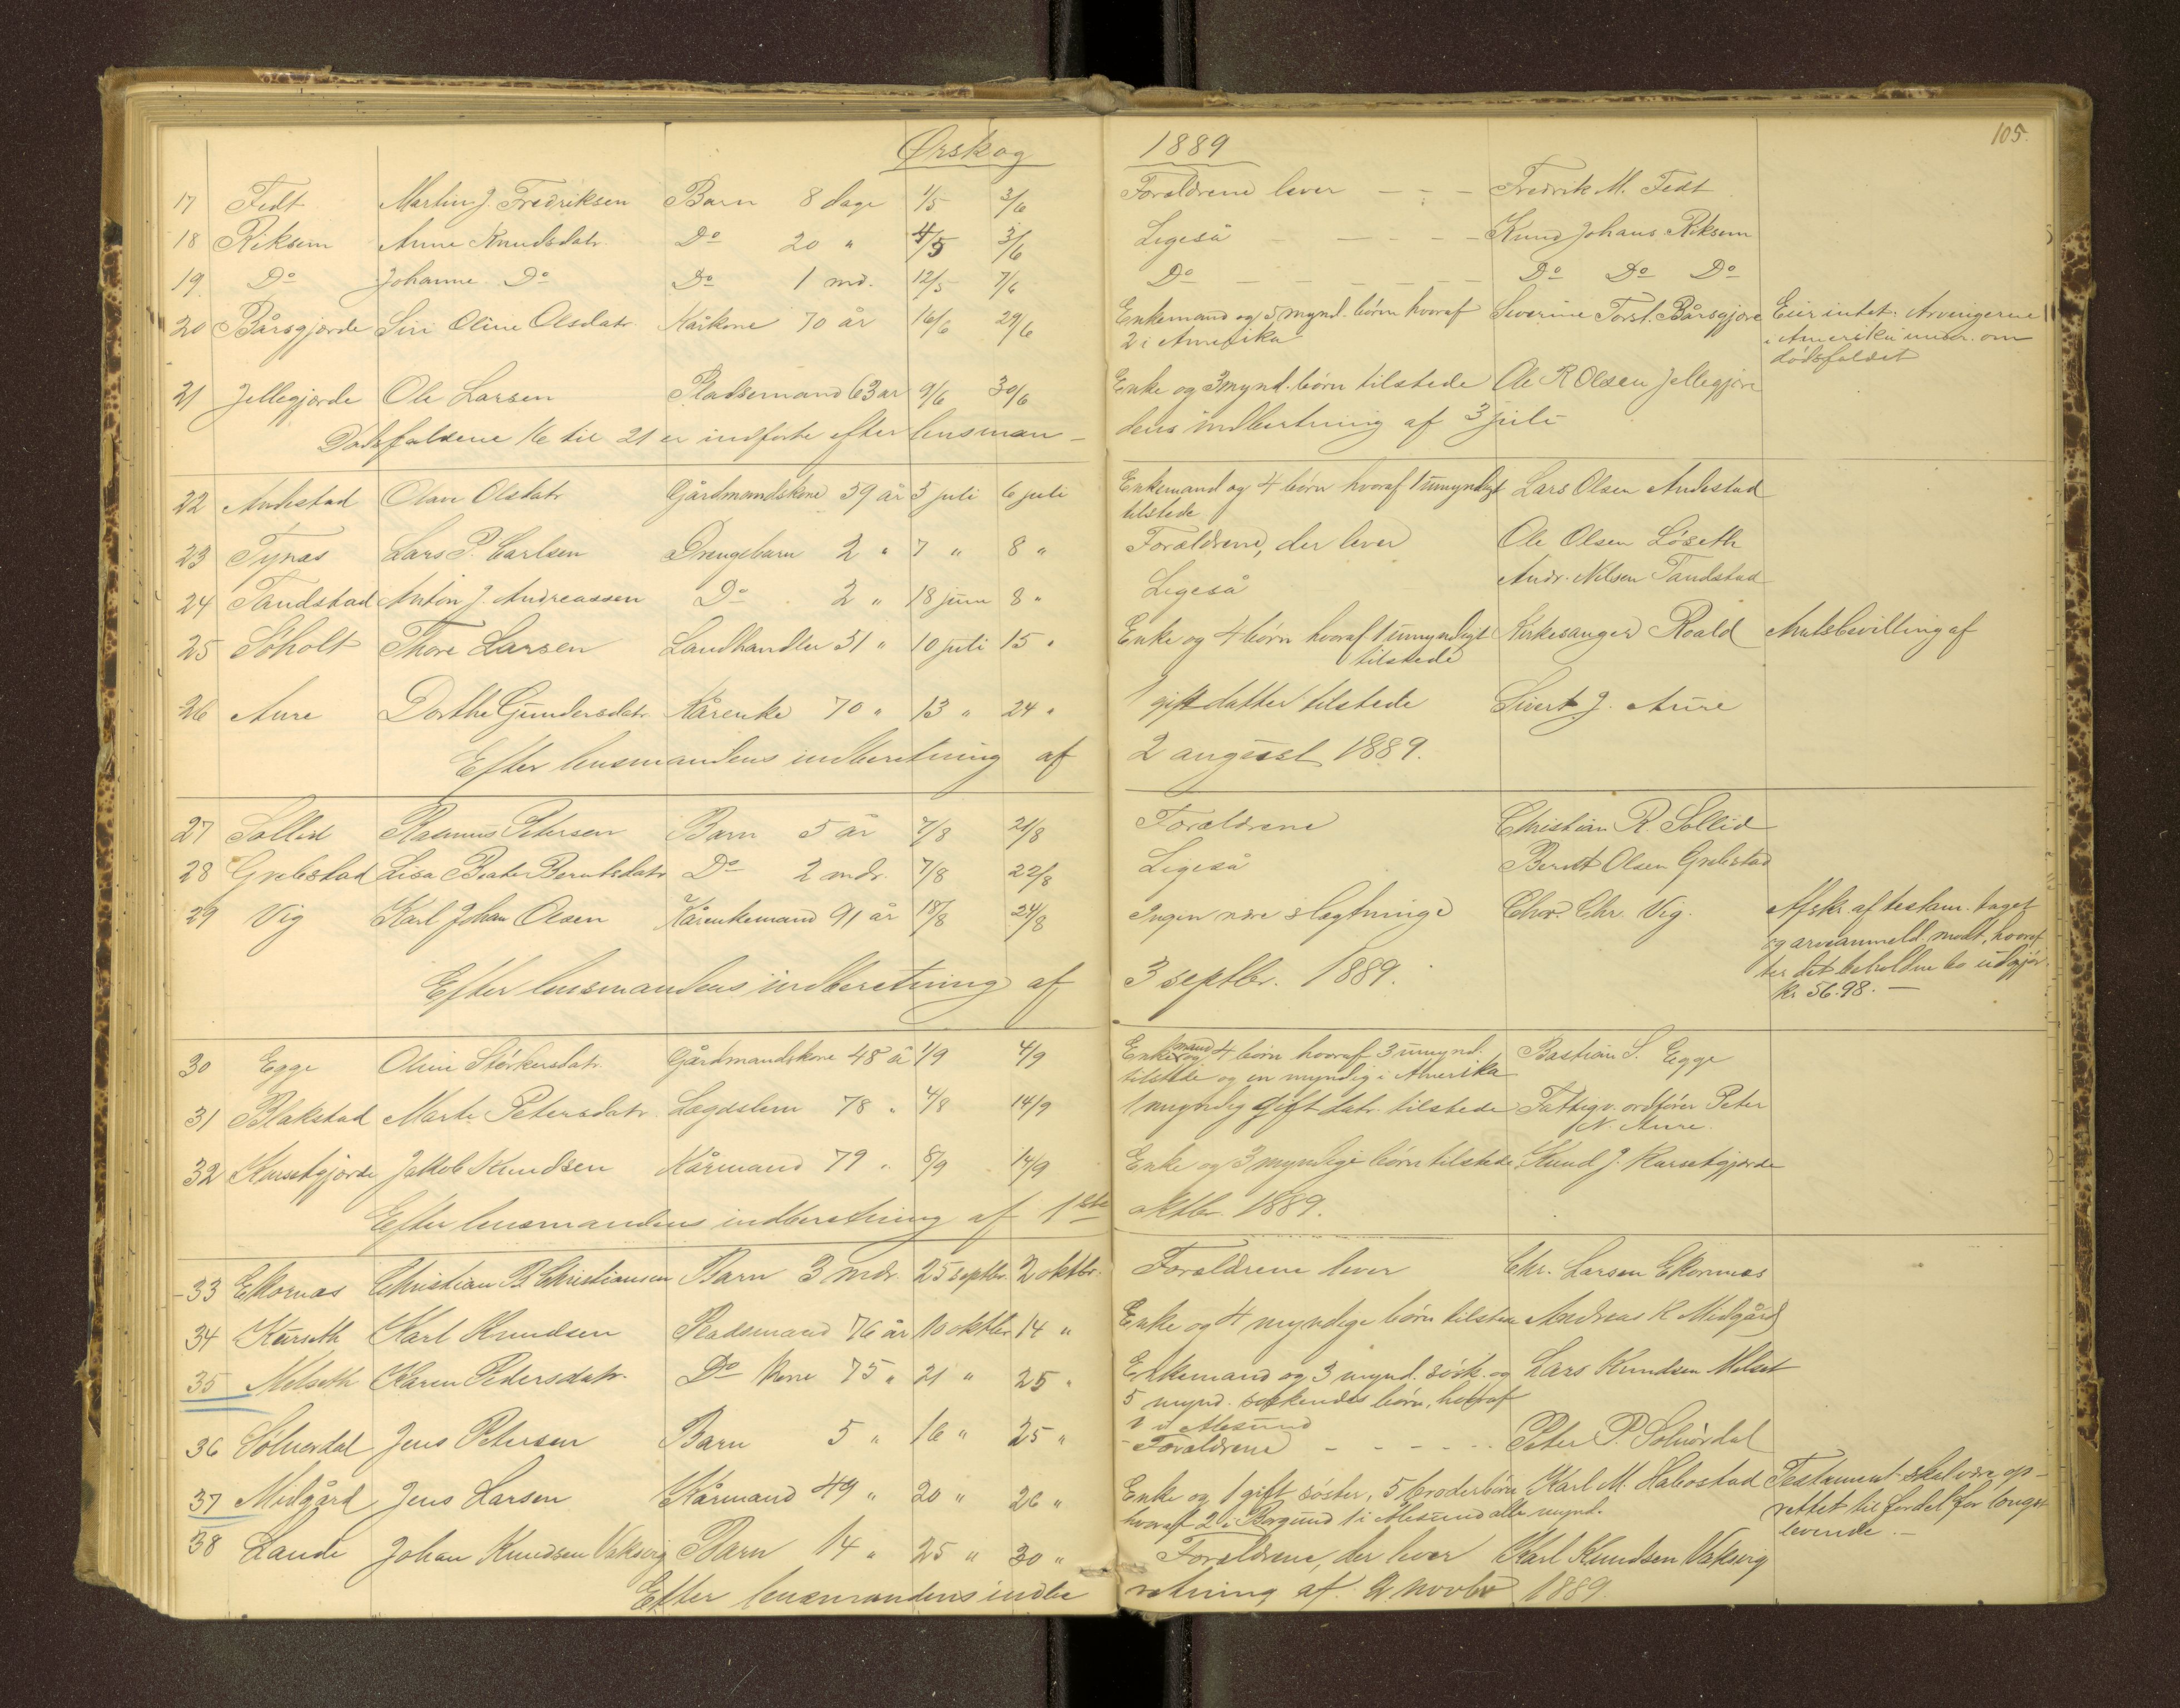 Ørskog 1889 105.
17 Fedt Martin J. Fredriksen Barn 8 dage 1/5 3/6 Forældrene lever - - - Fredrik M. Fedt
18 Riksem Anne Knudsdatr. Do 20 " 4/5 3/6 Ligeså - - - - Knud Johans Riksem
19 Do Johanne Do Do 1 md. 12/5 7/6 Do - - - - - - Do Do Do
20 Bårsgjorde Siri Oline Olsdatr. Kårkone 70 år 16/6 29/6 Enkemand og 5 mynd. børn hvoraf Severine Torst. Bårsgjore Eier intet. Arvingerne
2 i Amerika i Amerika underr. om
dødsfaldet
21 Jellegjorde Ole Larsen Pladsemand 63 år 9/6 30/6 Enke og 3 mynd. børn tilstede Ole R Olsen Jellegjore
Dødsfaldene 16 til 21 er indførte efter lensman-
dens indberetning af 3 juli
22 Andestad Olave Olsdatr Gårdmandskone 59 år 3 juli 6 juli Enkemand og 4 børn hvoraf 1 umyndigt Lars Olsen Andestad
tilstede
23 Tynæs Lars P. Carlsen Drengebarn 2 " 7 " 8 " Forældrene, der lever Ole Olsen Løseth
24 Tandstad Anton J. Andreassen Do 2 " 18 juni 8 " Ligeså Andr. Nilsen Tandstad
25 Søholt Thore Larsen Landhandler 31 " 10 juli 15 " Enke og 4 børn hvoraf 1 umyndigt Kirkesanger Roald Amtsbevilling af
tilstede
26 Aure Dorthe Gundersdatr Kårenke 70 " 13 " 24 " 1 gift datter tilstede Sivert J. Aure
Efter lensmandens indberetning af 2 august 1889.
27 Sollid Rasmus Petersen Barn 5 år 7/8 21/8 Forældrene Christian R. Sollid
28 Grebstad Lisa Beate Berntsdatr Do 2 mdr. 7/8 22/8 Ligeså Bernt Olsen Grebstad
29 Vig Karl Johan Olsen Kårenkemand 91 år 18/8 24/8 Ingen nære slægtninge Chr. Vig. Afskr. af testam. taget
og arveanmeld. modt., hvoraf
ter det beholdne bo udgjør
kr 56.98.-
Efter lensmandens indberetning af 3 septbr. 1889.
30 Egge Oline Størkersdatr. Gårdmandskone 48 å 1/9 4/9 Enkemand og 4 børn hvoraf 3 umynd. Bastian S. Egge
tilstede og en myndig i Amerika
31 Blakstad Marte Petersdatr. Lægdslem 78 " 4/8 14/9 1 myndig gift datr. tilstede Fattigv. ordfører Peter
N. Aure.
32 Kursetgjorde Jakob Knudsen Kårmand 79 " 8/9 14/9 Enke og 3 myndige børn tilstede Knud J. Kursetgjorde
Efter lensmandens indberetning af 1ste oktbr. 1889.
33 Ekornæs Christian B. Christiansen Barn 3 mdr. 25 septbr. 2 oktbr. Forældrene lever Chr. Larsen Ekornnæs
34 Kurseth Karl Knudsen Pladsemand 76 år 10 oktbr 14 " Enke og 4 myndige børn tilstede Andreas K Midgård
35 Melseth Karen Pedersdatr. Do kone 75 " 21 " 25 " Enkemand og 3 mynd. søsk. og Lars Knudsen Melset
5 mynd. søskendes børn, hvoraf
1 i Alesund
36 Sølverdal Jens Petersen Barn 5 " 16 " 25 " Forældrene - - - - - Peter P. Solnørdal
37 Midgård Jens Larsen Kårmand 49 " 20 " 26 " Enke og 1 gift søster, 5 broderbørn Karl M. Haborstad Testament skal være op-
hvoraf 2 i Borgund 1 i Alesund alle mynd. rettet til fordel for længst
levende.-
38 Lande Johan Knudsen Vaksvig Barn 14 " 25 " 30 " Forældrene, der lever Karl Knudsen Vaksvig
Efter lensmandens indbe retning af novbr 1889.